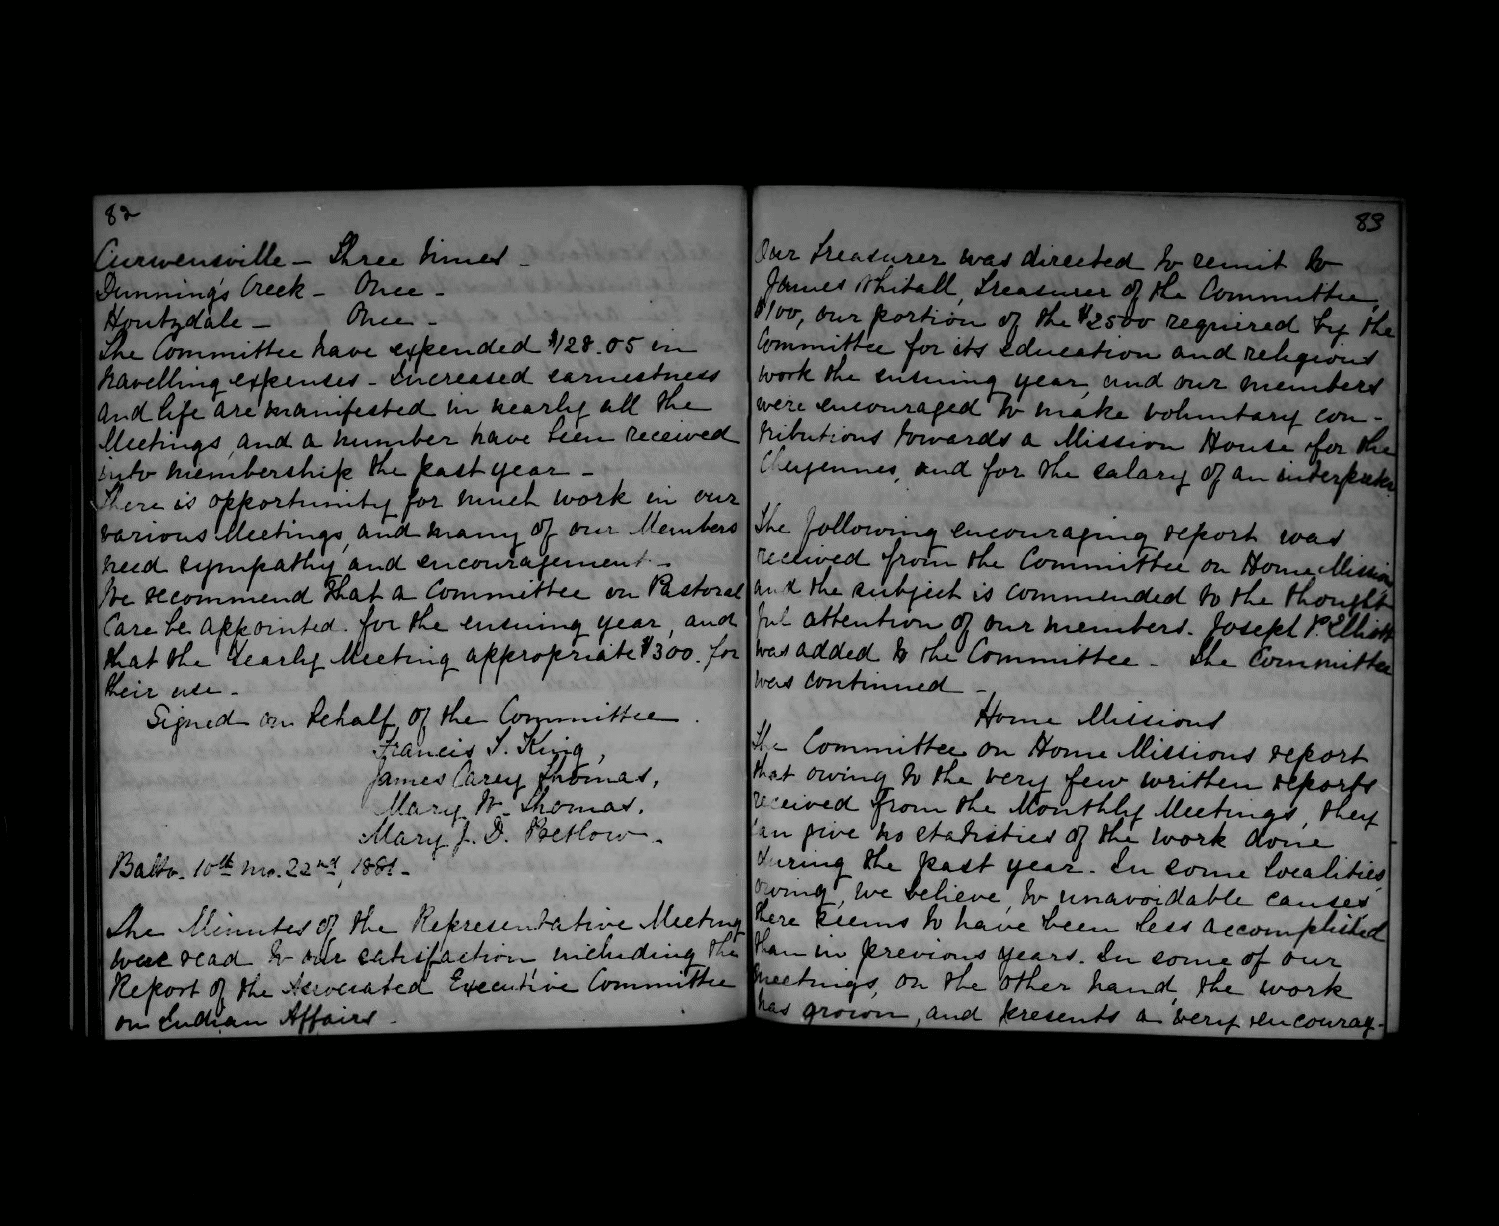 82
Curwensville - Three times -
Dunning's Creek - Once -
Houtzdale - Once -
The Committee have expended $128.05 in
travelling expenses - Increased earnestness
and life are manifested in nearly all the
Meetings, and a number have been received
into membership the past year -
There is opportunity for much work in our
various Meetings, and many of our Members
need sympathy and encouragement -
We recommend that a Committee on Pastoral
Care be appointed for the ensuing year, and
that the Yearly Meeting appropriate $300. for
their use -
Signed on behalf of the Committee.
Francis T. King,
James Carey Thomas,
Mary W. Thomas.
Mary J. D.
Balto. 10th mo. 22nd, 1881 -
The Minutes of the Representative Meeting
were read to our satisfaction including the
Report of the Associated Executive Committee
on Indian Affairs -
83
Our Treasurer was directed to remit to
James Whitall, Treasurer of the Committee,
$100, our portion of the $2500 required by the
Committee for its education and religious
work the ensuing year, and our members
were encouraged to make voluntary con-
tributions towards a Mission House for the
Cheyennes, and for the salary of an interpreter
The following encouraging report was
received from the Committee on Home Mission
and the subject is commended to the thought
ful attention of our members. Joseph P. Elliott
was added to the Committee - The Committee
was continued -
Home Missions
The Committee on Home Missions report
that owing to the very few written reports
received from the Monthly Meetings, they
can give no statistics of the work done
during the past year. In some localities,
owing, we believe, to unavoidable causes
there seems to have been less accomplished
than in previous years. In some of our
meetings, on the other hand, the work
has grown, and presents a very encourag-